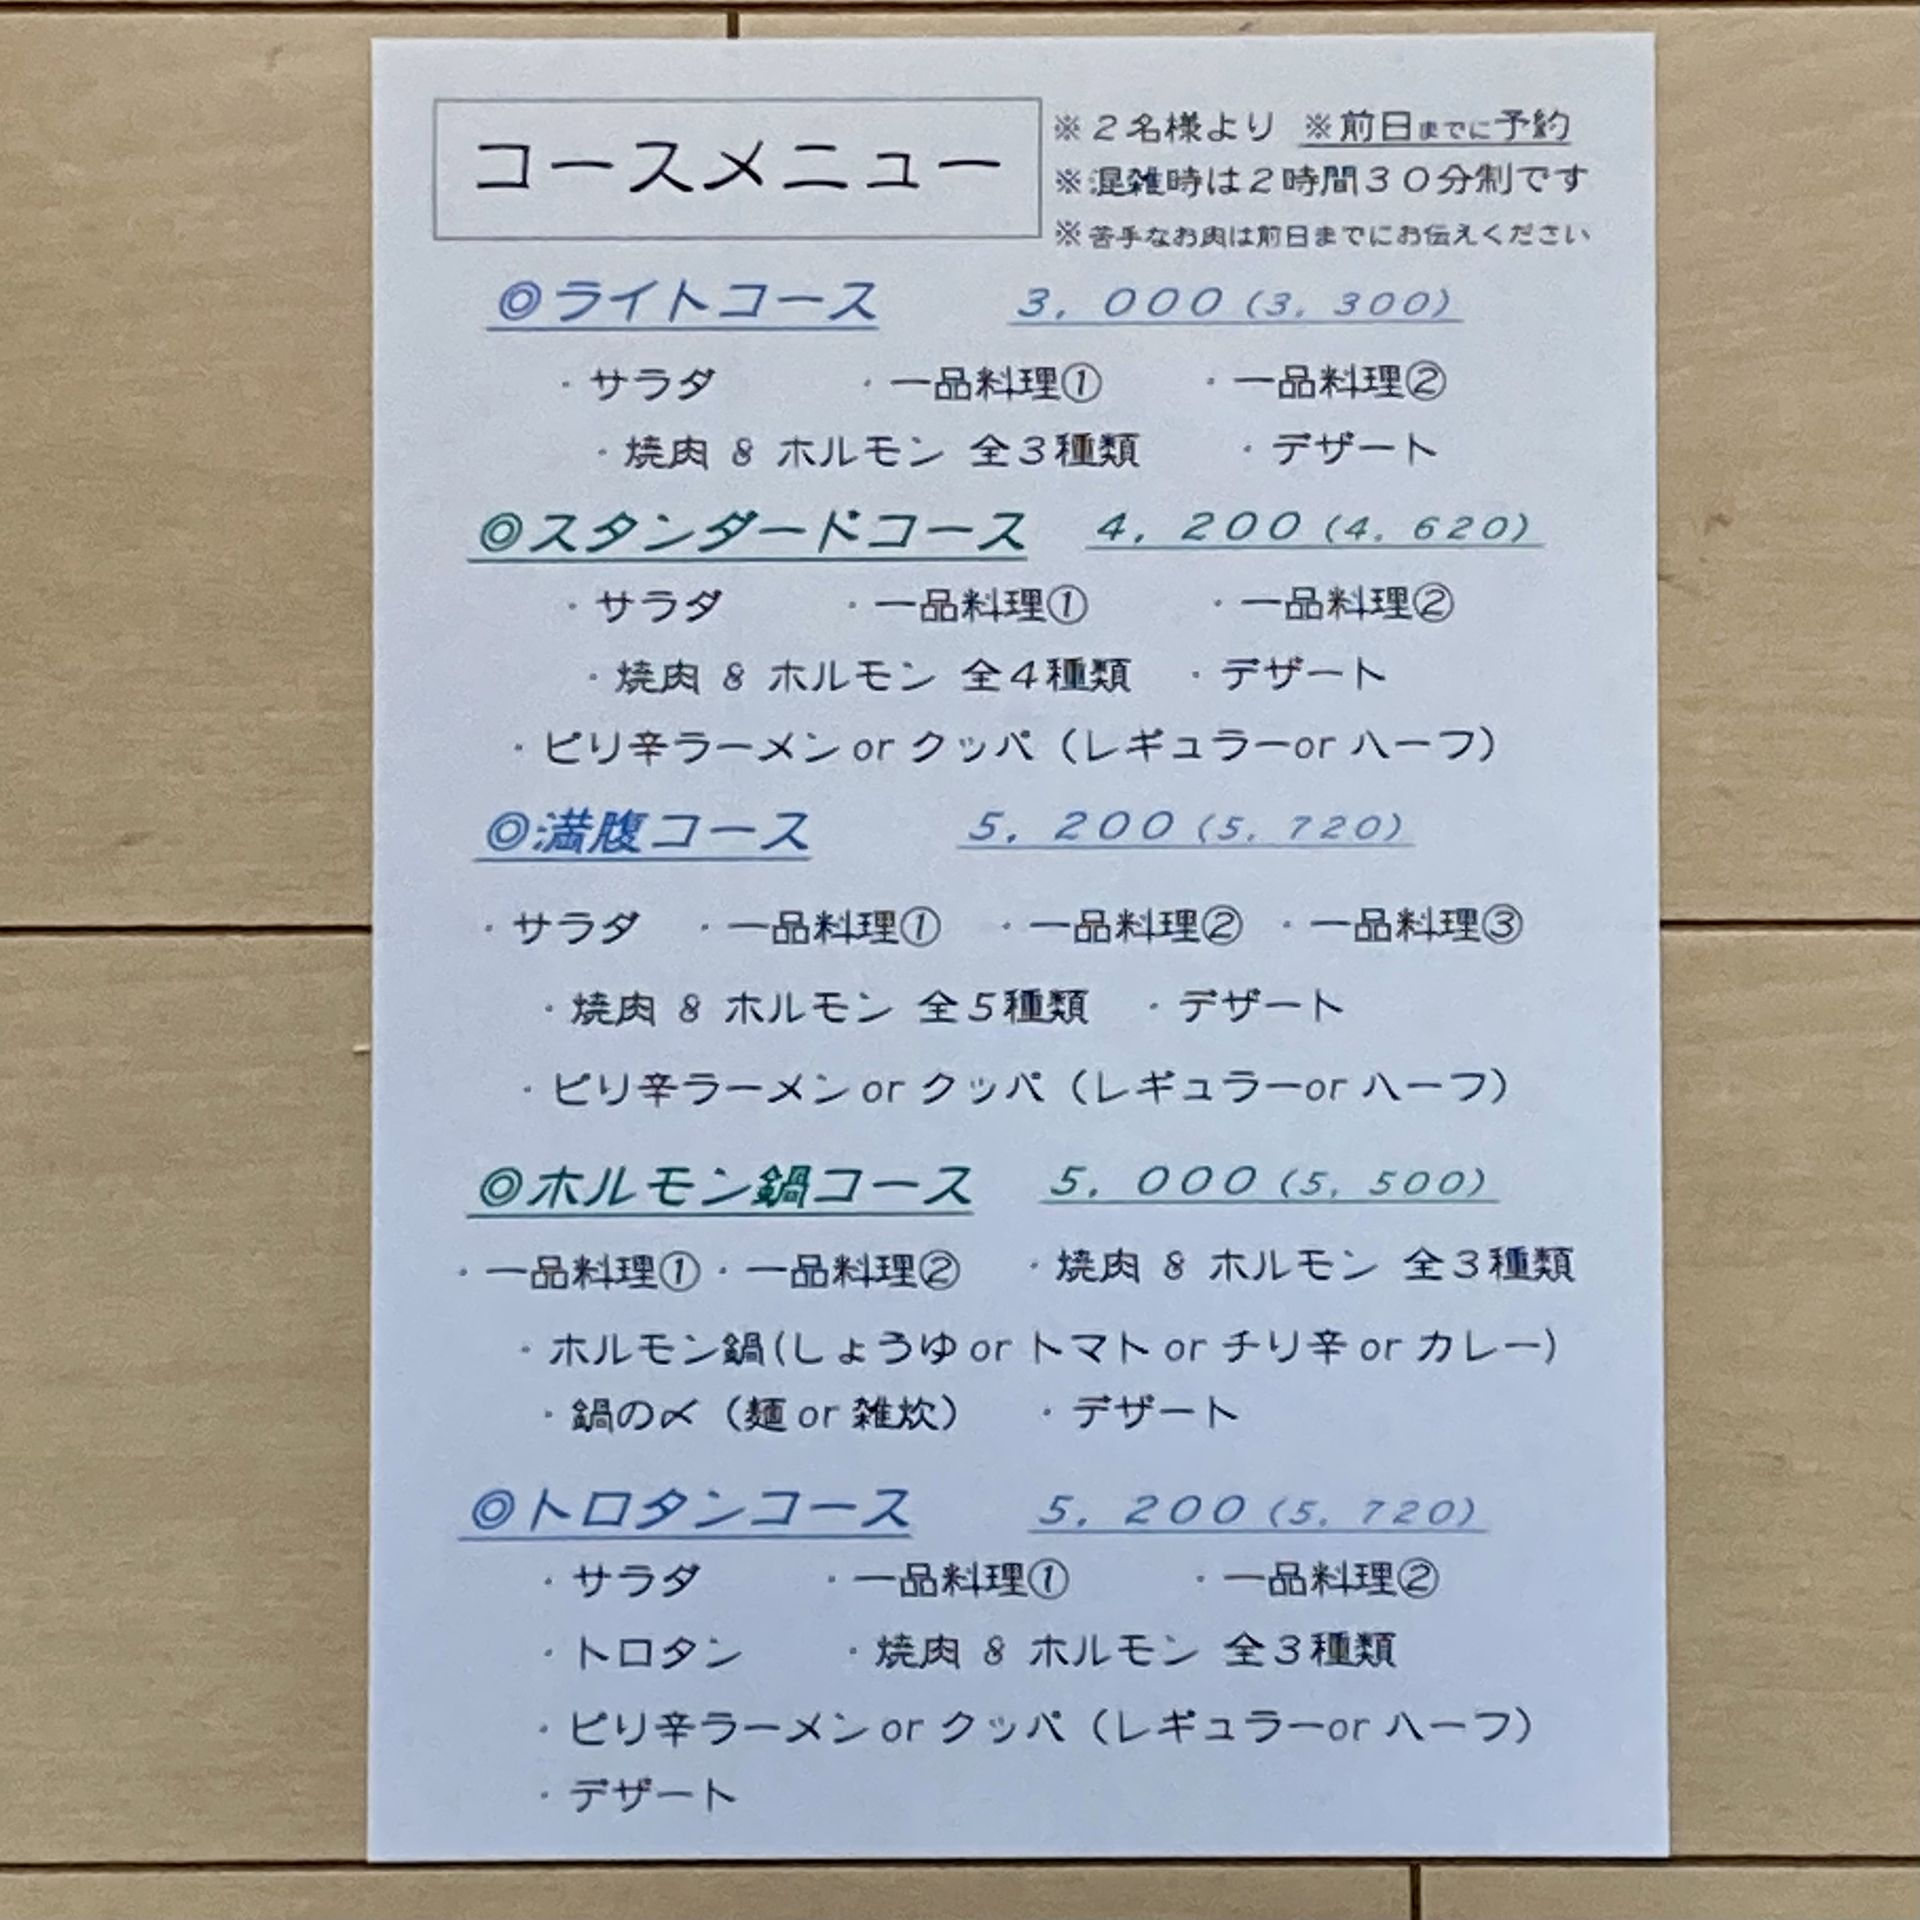 コースメニュー
※２名様より ※前日までに予約
※混雑時は２時間３０分制です
※苦手なお肉は前日までにお伝えください
◎ライトコース ３，０００（３，３００）
・サラダ ・一品料理① ・一品料理②
・焼肉 & ホルモン 全３種類 ・デザート
◎スタンダードコース ４，２００（４，６２０）
・サラダ ・一品料理① ・一品料理②
・焼肉 & ホルモン 全４種類 ・デザート
・ピリ辛ラーメン or クッパ（レギュラーor ハーフ）
◎満腹コース ５，２００（５，７２０）
・サラダ ・一品料理① ・一品料理② ・一品料理③
・焼肉 & ホルモン 全５種類 ・デザート
・ピリ辛ラーメン or クッパ（レギュラーor ハーフ）
◎ホルモン鍋コース ５，０００（５，５００）
・一品料理①・一品料理② ・焼肉 & ホルモン 全３種類
・ホルモン鍋(しょうゆ or トマト or チリ辛 or カレー)
・鍋の〆（麺 or 雑炊） ・デザート
◎トロタンコース ５，２００（５，７２０）
・サラダ ・一品料理① ・一品料理②
・トロタン ・焼肉 & ホルモン 全３種類
・ピリ辛ラーメン or クッパ（レギュラーor ハーフ）
・デザート